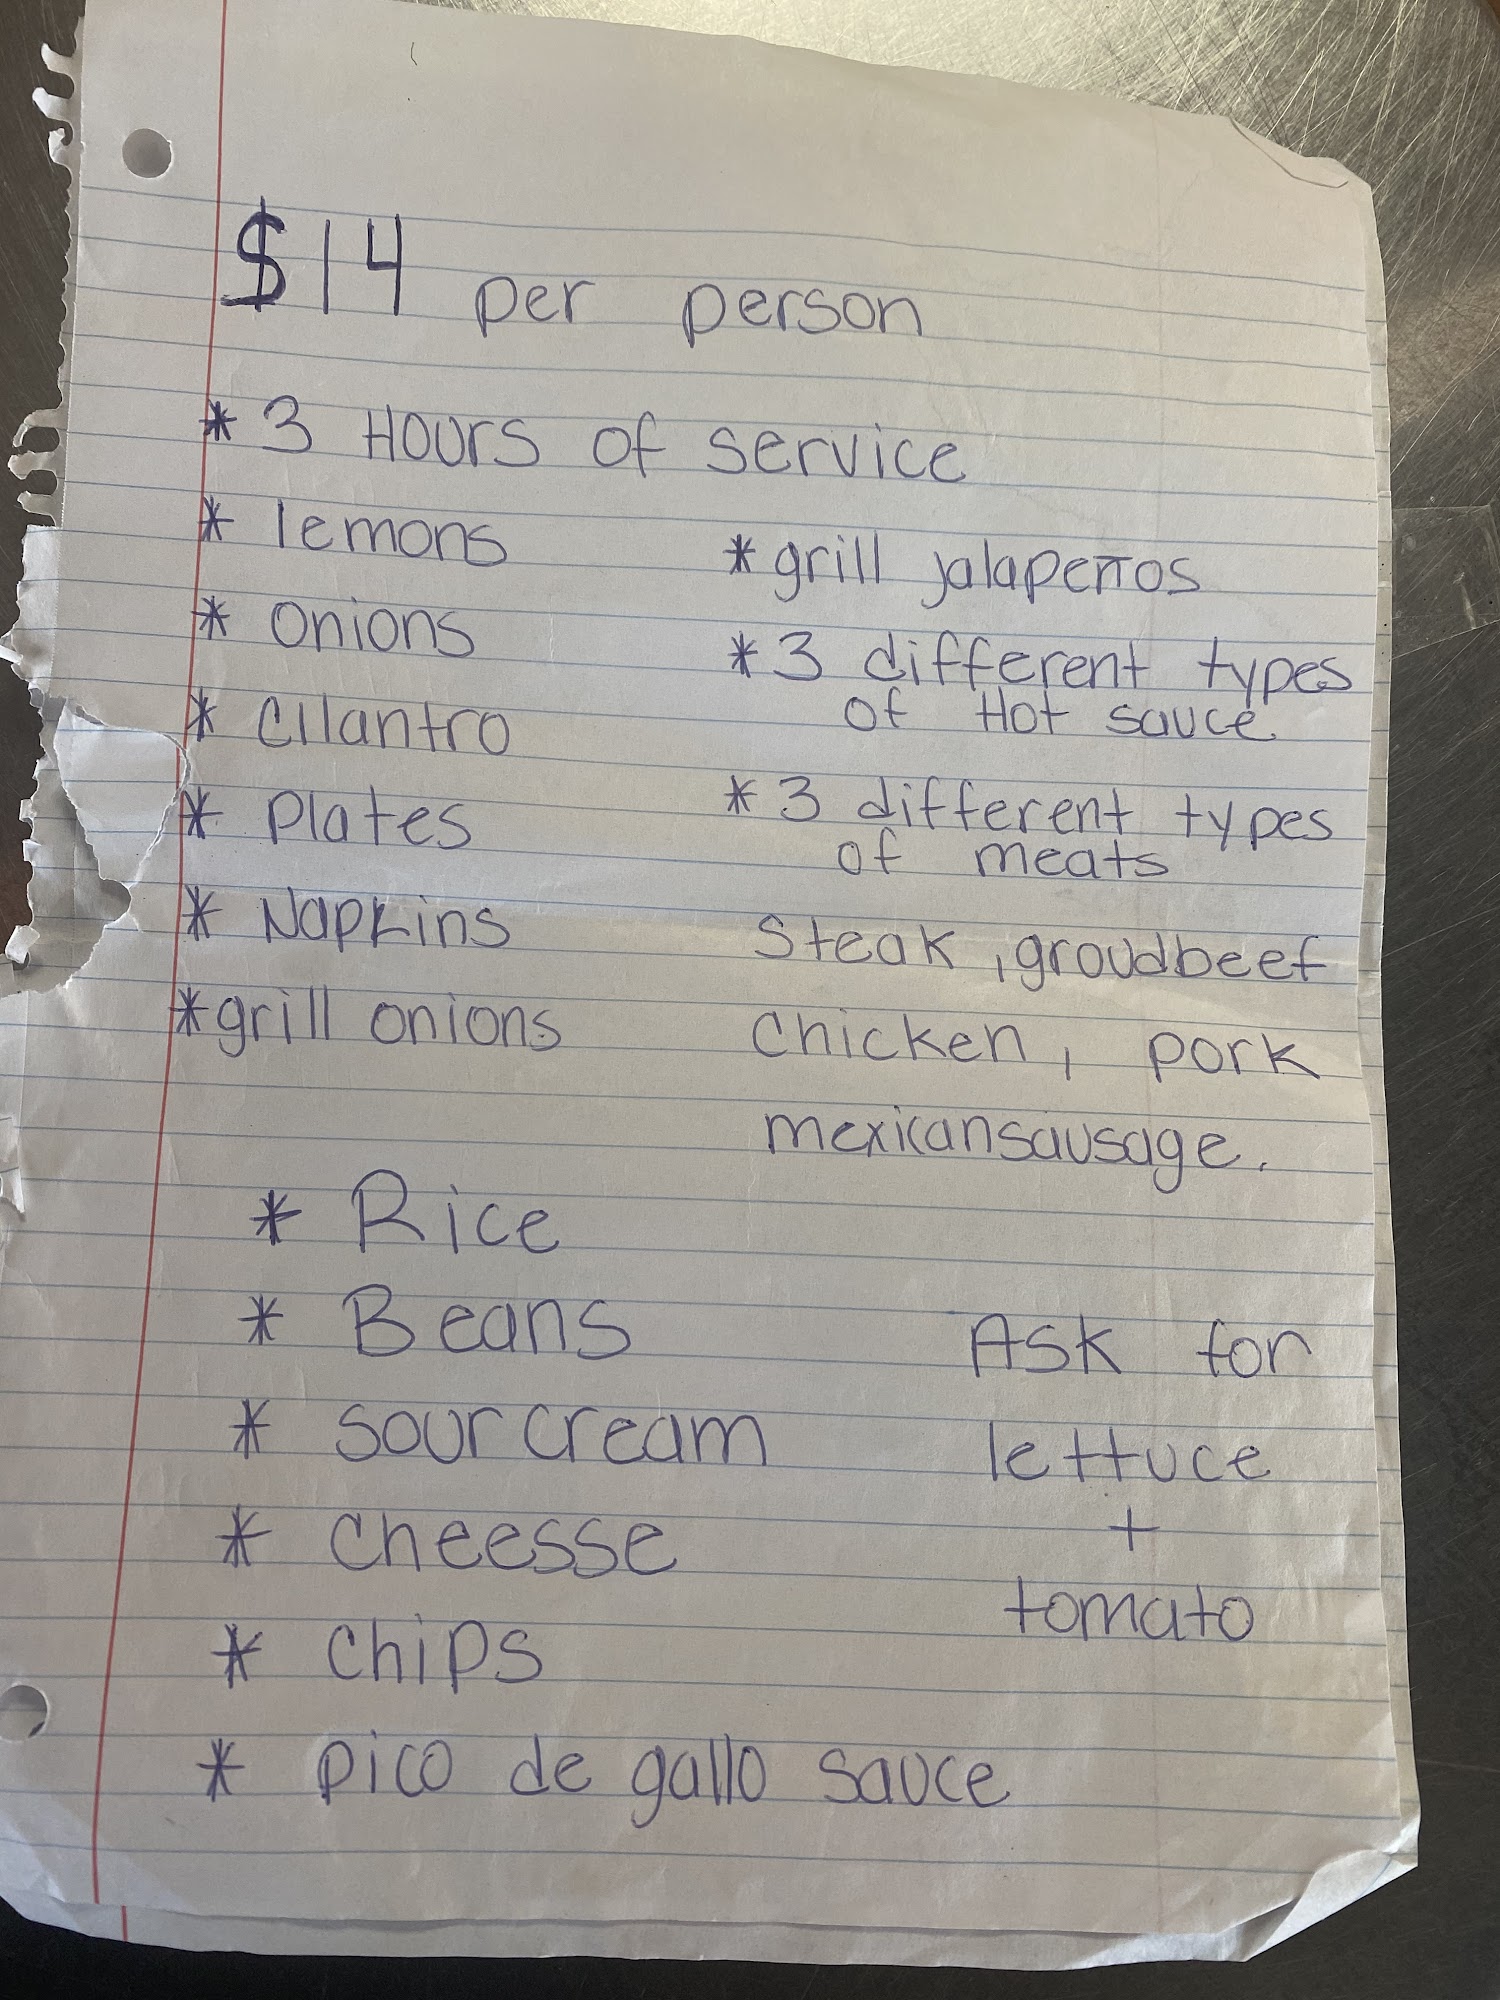 $14 per person
* 3 Hours of service
* lemons
* onions
* cilantro
* Plates
* Napkins
* grill onions
* grill jalapeños
* 3 different types
of Hot sauce
* 3 different types
of meats
Steak, groudbeef
chicken, pork
mexicansausage.
* Rice
* Beans
* sour cream
* cheesse
* chips
* pico de gallo sauce
Ask for
lettuce
+
tomato